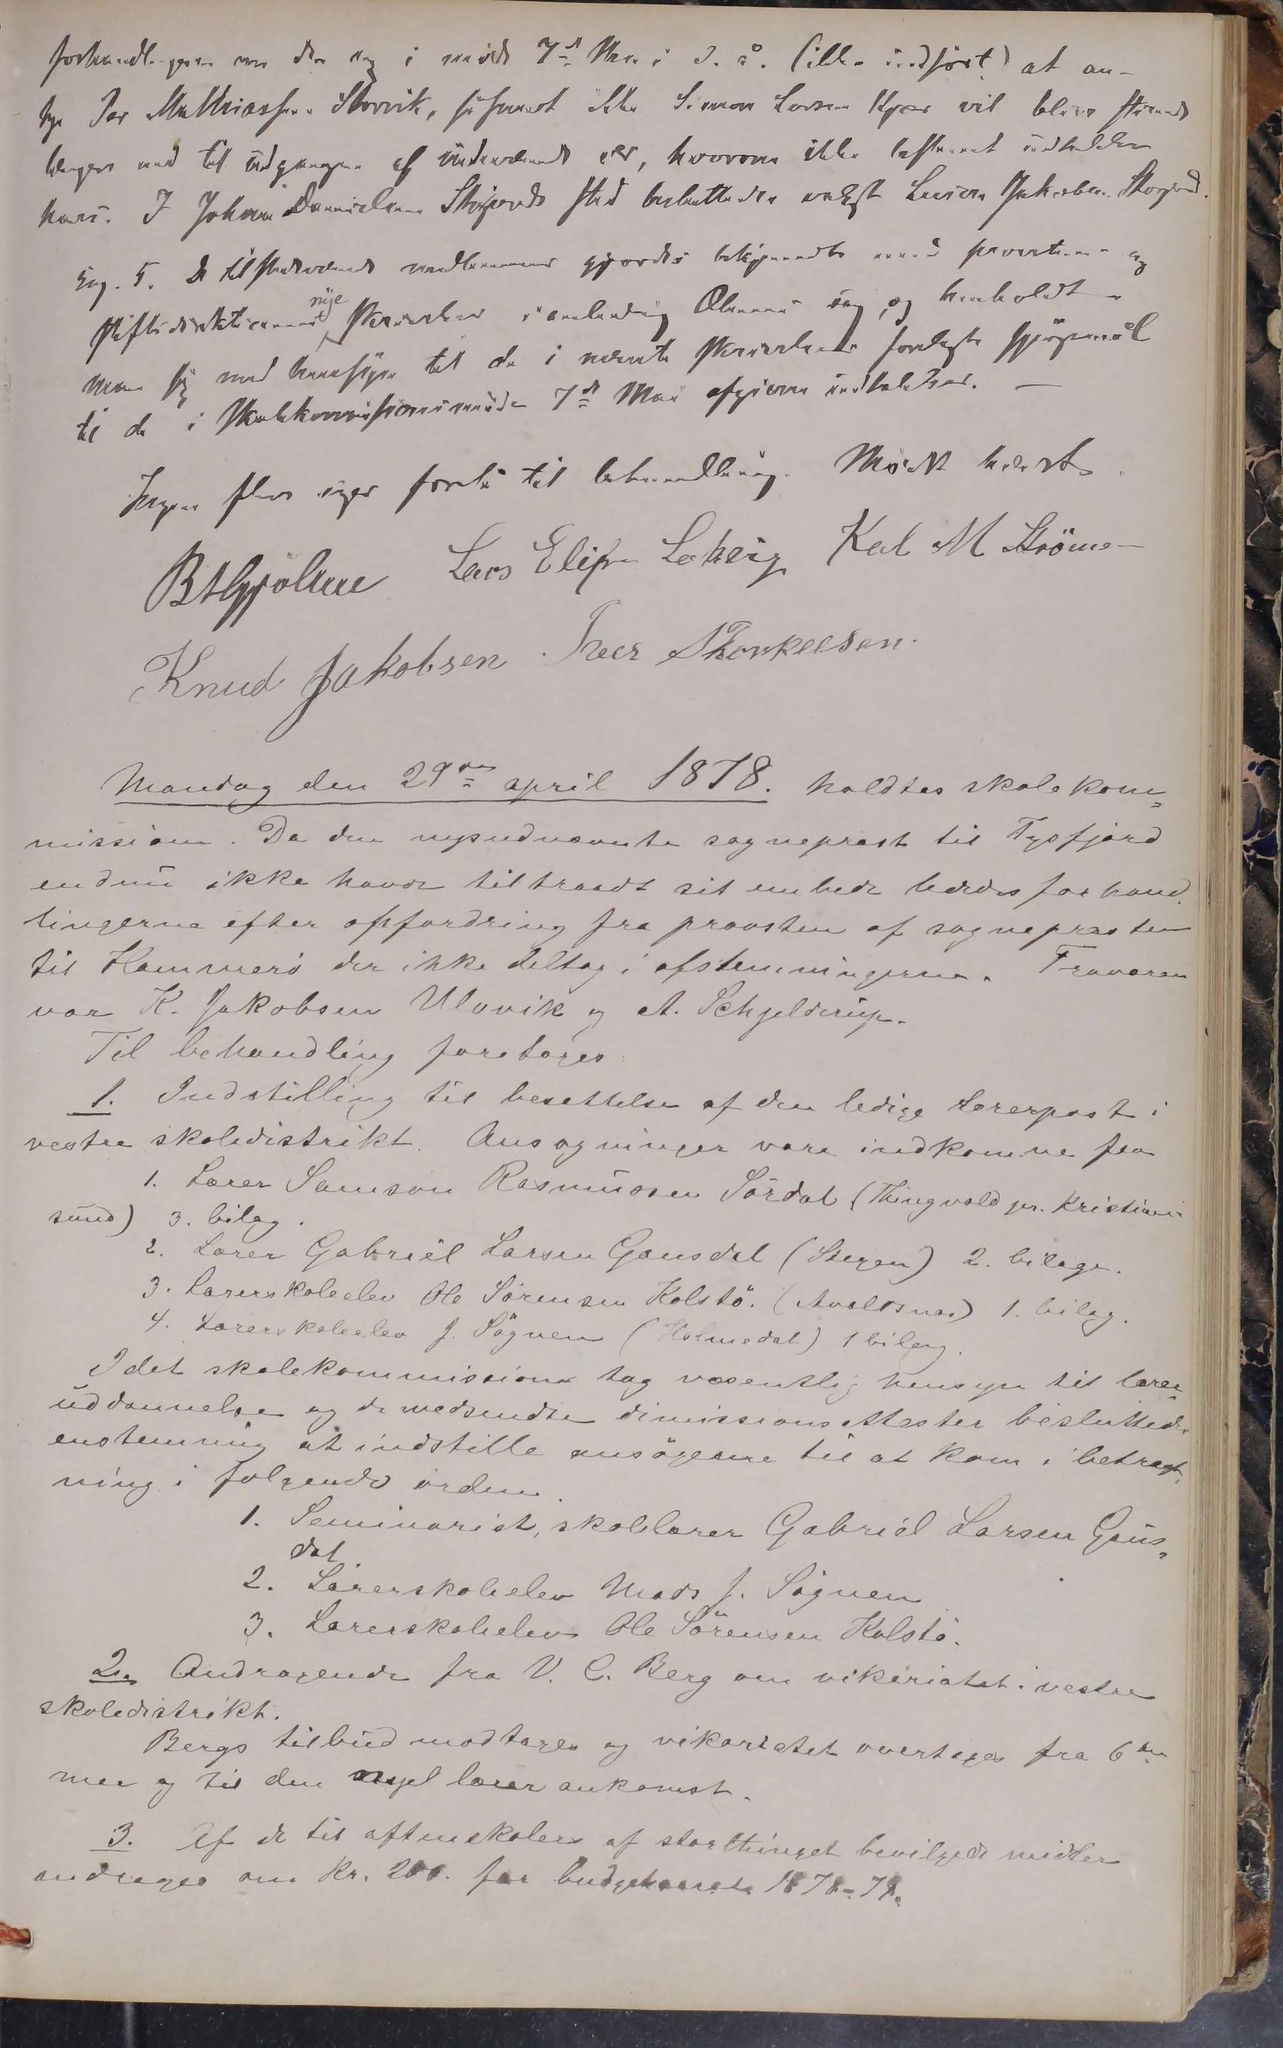 forhandlingerne om den sag i møde 7de Mai d. å. (ikke indført) at an-
tage Per Mathiassen Storvik, såfremt ikke Simon Larsen Kjær vil blive stående
længer end til udgangen af indeværende år, hvorom ikke bestemt udtalelse
haves. I Johan Danielsen Skogvolds sted besluttedes valgt Jakobsen
Sag. 5. De tilstedeværende medlemmer gjordes bekjendte med provstens og
stiftsdirektionens nye skrivelser i anledning sag, og henholdt
man sig med hensyn til de i nævnte skrivelser forelagte spørgsmål
til de i skolekommissionsmøde 7de Mai afgivne udtalelser. —
Ingen flere sager forelå til behandling. Mødet hævet.
B Hgjølme Lars Elifs Karl M Ströms
Knud Jakobsen. Iver Thorkelsen.
Mandag den 29de april 1878. holdtes skolekom-
mission. Da den nysudnævnte sogneprest til Tysfjord
endnu ikke havde tiltraadt sit embede lededes forhand-
lingerne efter opfordring fra provsten af sognepresten
til Hammerö der ikke deltog i afstemningerne. Fraværen
var K. Jakobsen Ulvvik og A. Schjelderup.
Til behandling foretoges
1. Indstilling til besættelse af den ledige lærerpost i
vestre skoledistrikt. Ansøgninger vare indkomne fra
1. Lærer Samson Rasmussen Sördal (Thingvold pr. Kristian-
sund) 3. bilag.
2. Lærer Gabriel Larsen Gausdal (Stegen) 2. bilage.
3. Lærerskoleelev Ole Sörensen Kolstö. (Avaldsnes) 1. bilag.
4. Lærerskoleelev J. Sögnen (Holmedal) 1 bilag.
Idet skolekommissionen tog væsentlig hensyn til lærer-
uddannelse og de medsendte dimissionsattester besluttedes
enstemmig at indstille ansögerne til at kom i betragt-
ning i følgende orden.
1. Seminarist, skolelærer Gabriel Larsen Gaus-
dal.
2. Lærerskoleelev Mads J. Sögnen
3. Lærerskoleelev Ole Sörensen Kolstö.
2. Andragende fra V. C. Berg om vikariatet i vestre
skoledistrikt.
Bergs tilbud modtages og vikariatet overtages fra 6te
mai og til den lærer ankomst.
3. Af de til aftenskoler af storthinget bevilgede midler
andrages om Kr. 200. for budgetaaret 1878-79.